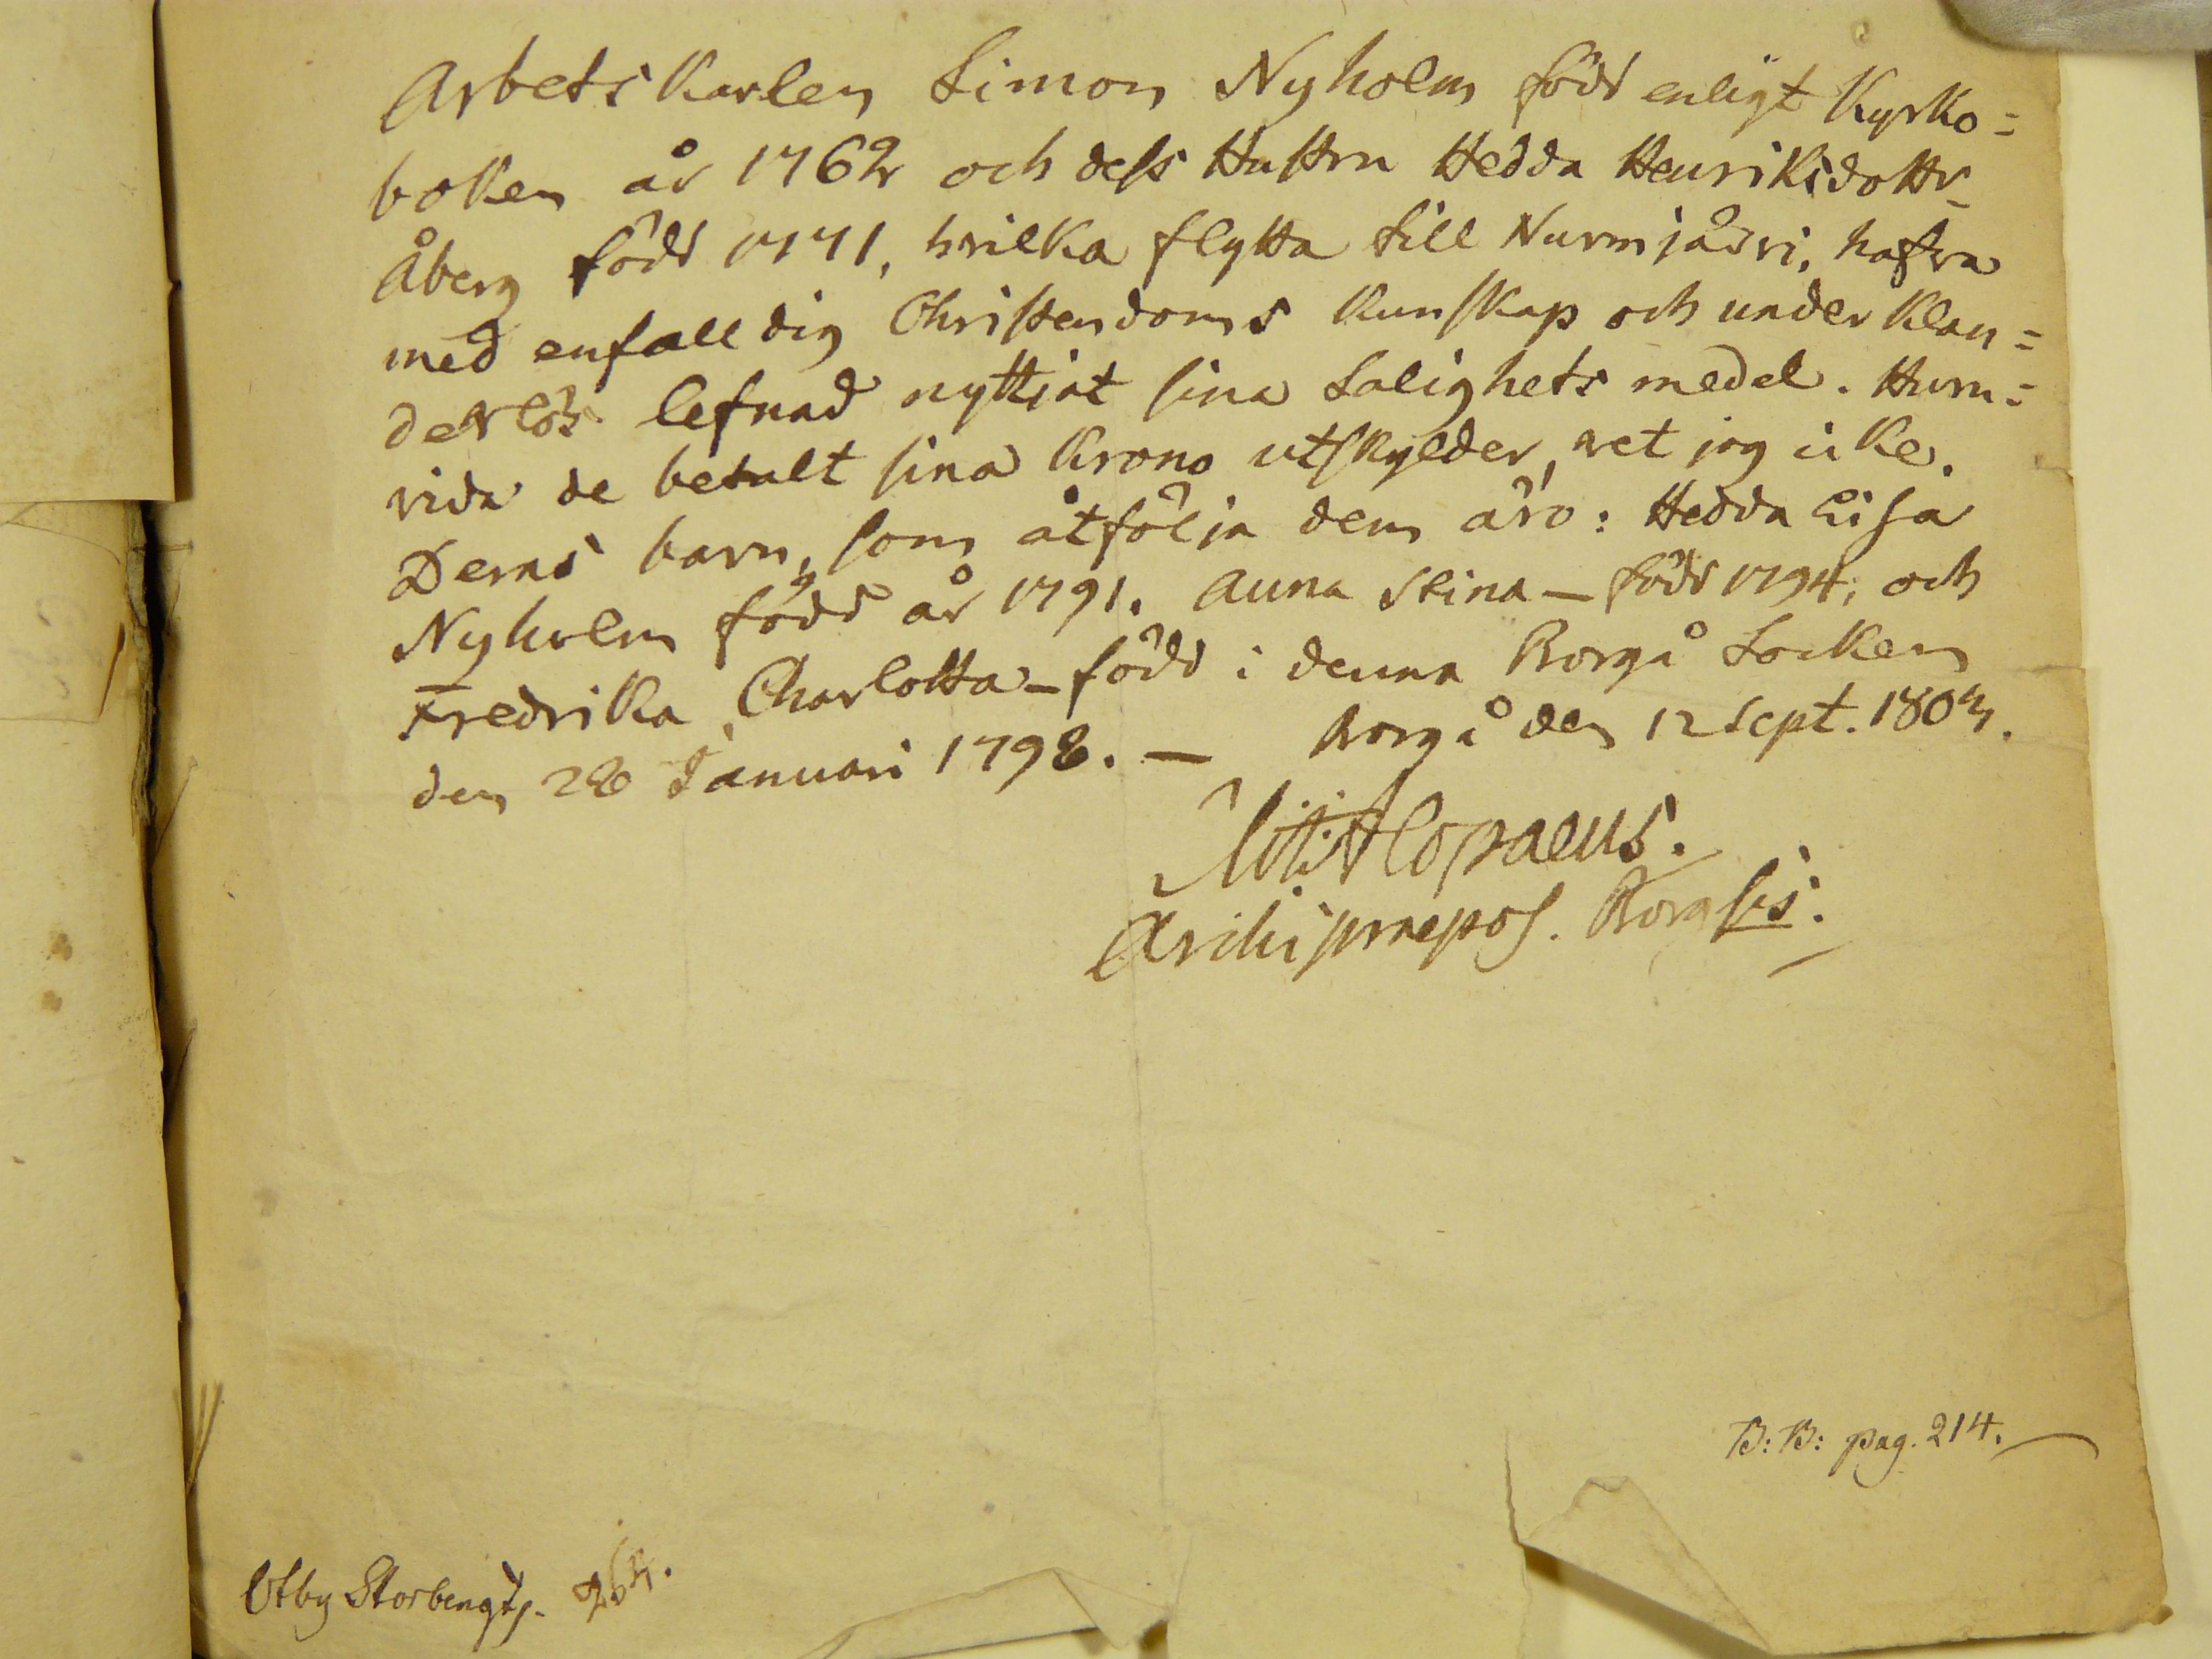 Arbets Karlen Simon Nyholm född enligt Kyrko=
boken år 1762 och dess Hustru Hedda Henriksdottr
Åberg född 1771, hvilka flytta till Nurmijärvi, hafva
med enfalldig Christendoms Kunskap och under klan=
derlös lefnad nyttjat sina Salighets medel. Huru=
vida de betalt sina Krono utskylder, vet jag icke.
Deras barn, som åtfölja dem äro: Hedda Lisa
Nyholm född år 1791. Anna Stina - född 1794, och
Fredrika Charlotta - född i denna Borgå Socken
den 28 Januari 1798. — Borgå den 12 Sept. 1802.
Alopaeus.
Archipraepos. Borgsis.
B: B: pag. 214.
Utby Storbengts. 264.